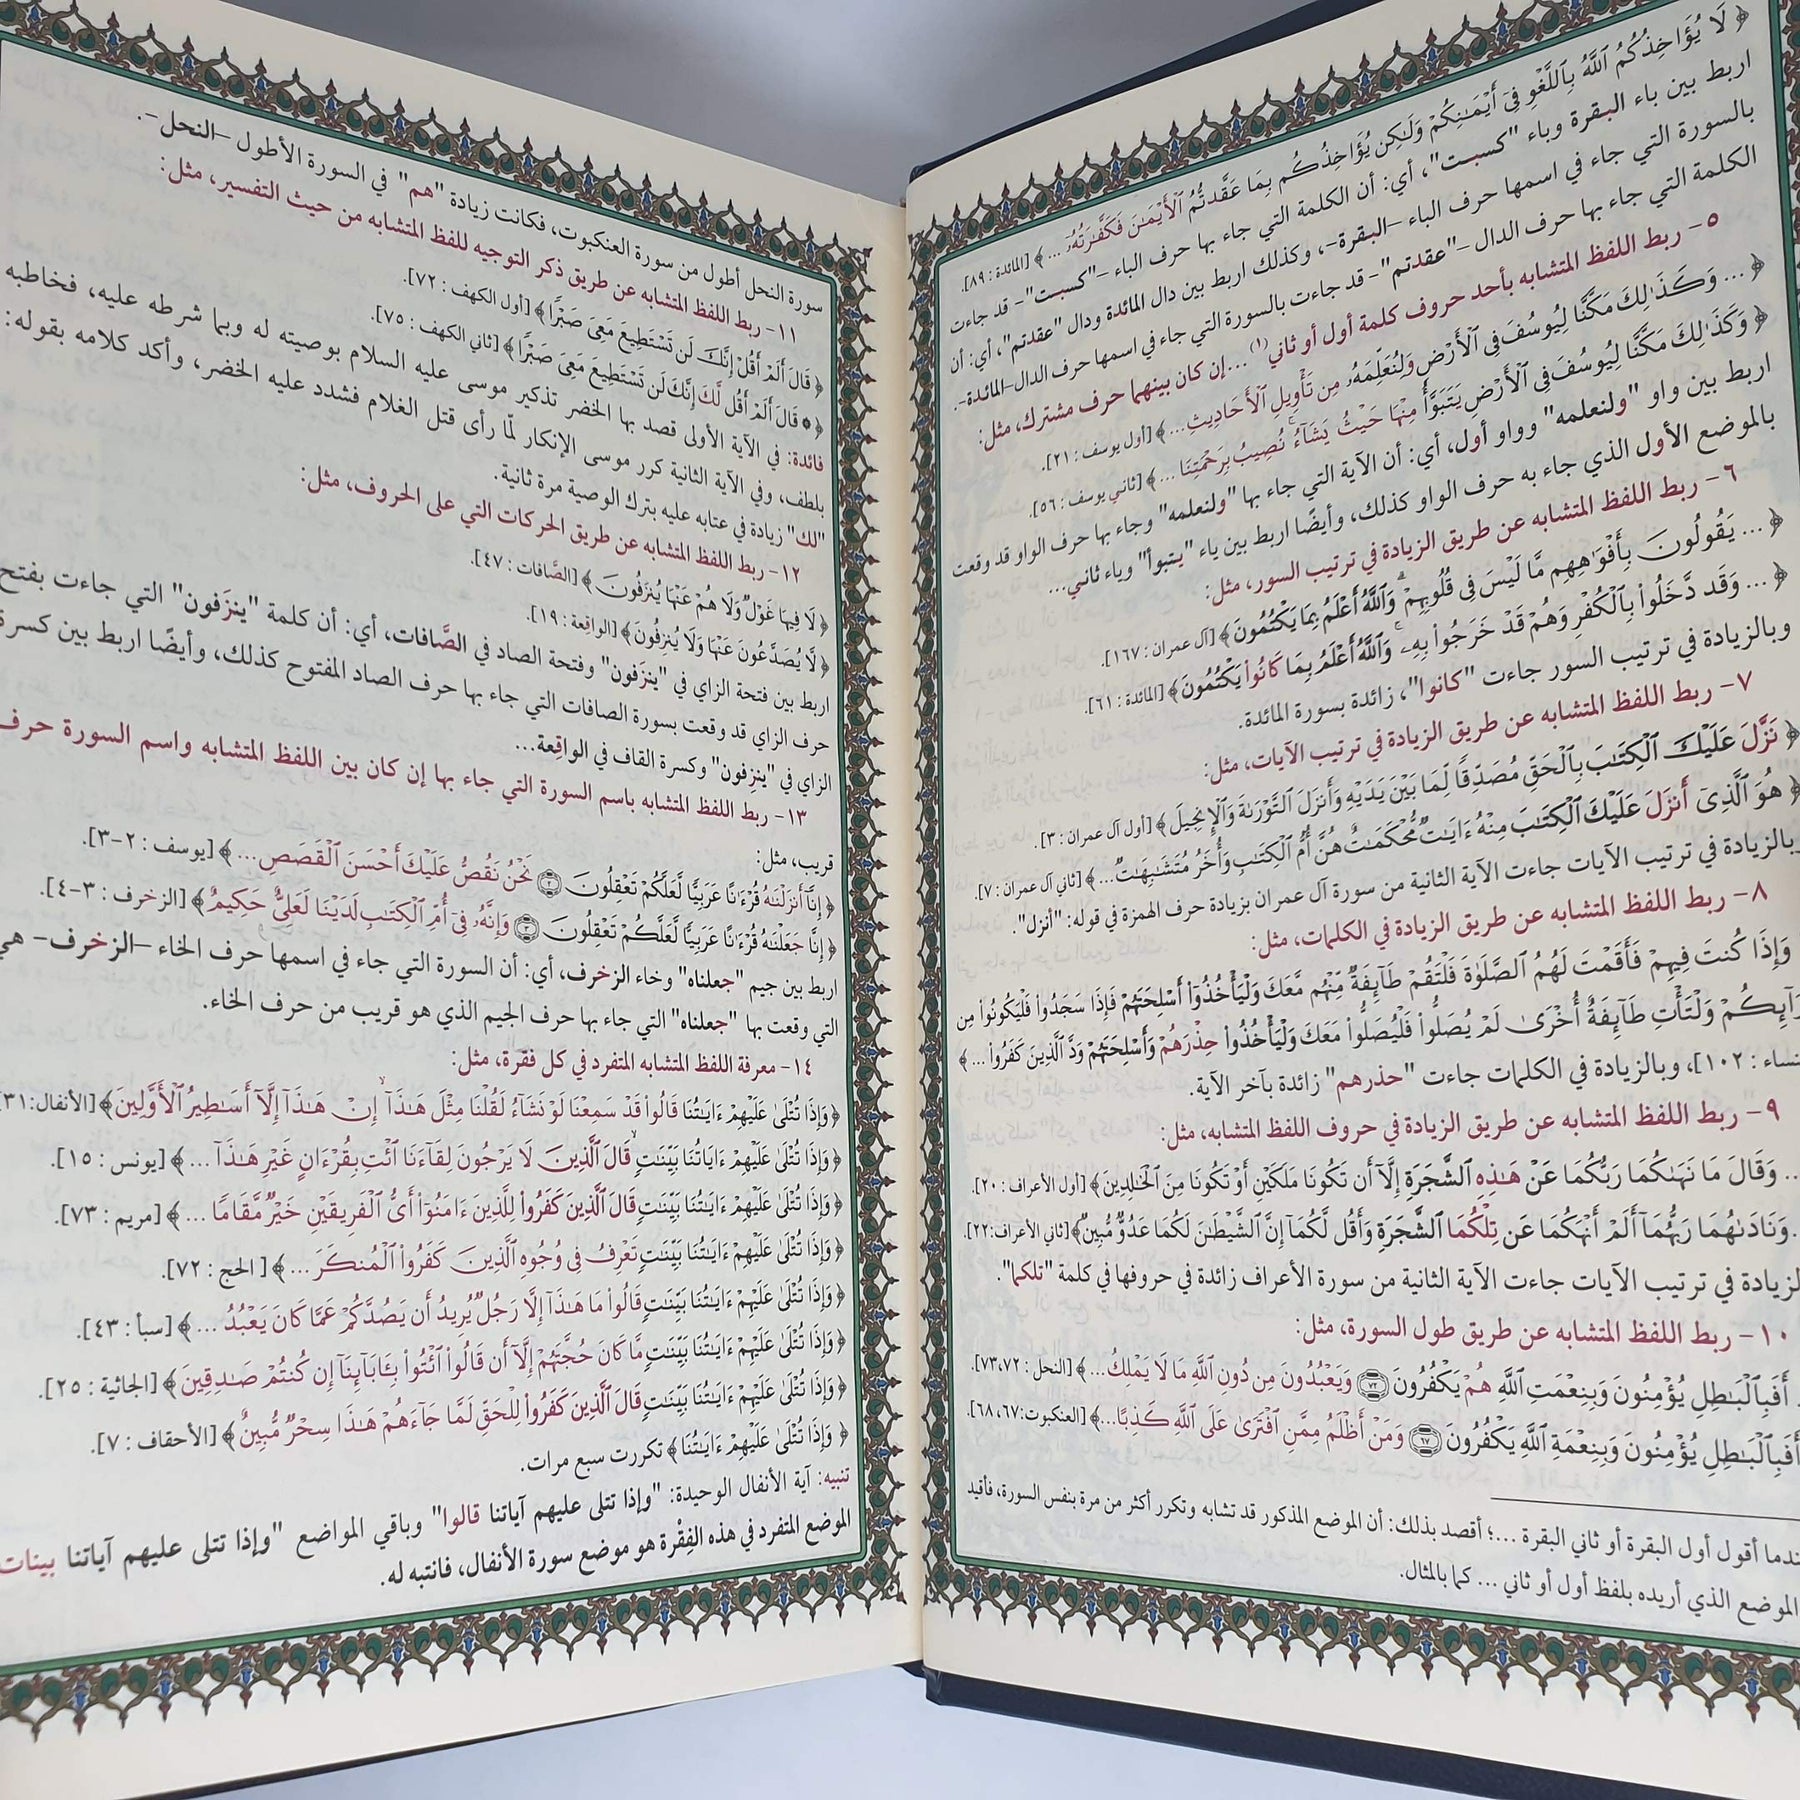 ﴿ لَا يُؤَاخِذُكُمُ ٱللَّهُ بِٱللَّغْوِ فِىٓ أَيْمَـٰنِكُمْ وَلَـٰكِن يُؤَاخِذُكُم بِمَا عَقَّدتُّمُ ٱلْأَيْمَـٰنَ فَكَفَّـٰرَتُهُۥٓ ... ﴾ [المائدة : ٨٩].
اربط بين باء البقرة وباء "كسبت"، أي: أن الكلمة التي جاء بها حرف الباء –"كسبت"– قد جاءت
بالسورة التي جاء في اسمها حرف الباء –البقرة–، وكذلك اربط بين دال المائدة ودال "عقدتم"، أي: أن
الكلمة التي جاء بها حرف الدال –"عقدتم"– قد جاءت بالسورة التي جاء في اسمها حرف الدال–المائدة–.
٥- ربط اللفظ المتشابه بأحد حروف كلمة أول أو ثاني(١) ...إن كان بينهما حرف مشترك، مثل:
﴿ ... وَكَذَٰلِكَ مَكَّنَّا لِيُوسُفَ فِى ٱلْأَرْضِ وَلِنُعَلِّمَهُۥ مِن تَأْوِيلِ ٱلْأَحَادِيثِ... ﴾ [أول يوسف : ٢١].
﴿ وَكَذَٰلِكَ مَكَّنَّا لِيُوسُفَ فِى ٱلْأَرْضِ يَتَبَوَّأُ مِنْهَا حَيْثُ يَشَآءُ ۚ نُصِيبُ بِرَحْمَتِنَا ... ﴾ [ثاني يوسف : ٥٦].
اربط بين واو "ولنعلمه" وواو أول، أي: أن الآية التي جاء بها "ولنعلمه" وجاء بها حرف الواو قد وقعت
بالموضع الأول الذي جاء به حرف الواو كذلك، وأيضًا اربط بين ياء "يتبوأ" وياء ثاني...
٦- ربط اللفظ المتشابه عن طريق الزيادة في ترتيب السور، مثل:
﴿ ... يَقُولُونَ بِأَفْوَٰهِهِم مَّا لَيْسَ فِى قُلُوبِهِمْ ۗ وَٱللَّهُ أَعْلَمُ بِمَا يَكْتُمُونَ ﴾ [آل عمران : ١٦٧].
﴿ ... وَقَد دَّخَلُوا۟ بِٱلْكُفْرِ وَهُمْ قَدْ خَرَجُوا۟ بِهِۦ ۚ وَٱللَّهُ أَعْلَمُ بِمَا كَانُوا۟ يَكْتُمُونَ ﴾ [المائدة : ٦١].
وبالزيادة في ترتيب السور جاءت "كانوا"، زائدة بسورة المائدة.
٧- ربط اللفظ المتشابه عن طريق الزيادة في ترتيب الآيات، مثل:
﴿ نَزَّلَ عَلَيْكَ ٱلْكِتَـٰبَ بِٱلْحَقِّ مُصَدِّقًا لِّمَا بَيْنَ يَدَيْهِ وَأَنزَلَ ٱلتَّوْرَىٰةَ وَٱلْإِنجِيلَ ﴾ [أول آل عمران : ٣].
﴿ هُوَ ٱلَّذِىٓ أَنزَلَ عَلَيْكَ ٱلْكِتَـٰبَ مِنْهُ ءَايَـٰتٌ مُّحْكَمَـٰتٌ هُنَّ أُمُّ ٱلْكِتَـٰبِ وَأُخَرُ مُتَشَـٰبِهَـٰتٌ... ﴾ [ثاني آل عمران : ٧].
وبالزيادة في ترتيب الآيات جاءت الآية الثانية من سورة آل عمران بزيادة حرف الهمزة في قوله: "أنزل".
٨- ربط اللفظ المتشابه عن طريق الزيادة في الكلمات، مثل:
وَإِذَا كُنتَ فِيهِمْ فَأَقَمْتَ لَهُمُ ٱلصَّلَوٰةَ فَلْتَقُمْ طَآئِفَةٌ مِّنْهُم مَّعَكَ وَلْيَأْخُذُوٓا۟ أَسْلِحَتَهُمْ فَإِذَا سَجَدُوا۟ فَلْيَكُونُوا۟ مِن
وَرَآئِكُمْ وَلْتَأْتِ طَآئِفَةٌ أُخْرَىٰ لَمْ يُصَلُّوا۟ فَلْيُصَلُّوا۟ مَعَكَ وَلْيَأْخُذُوا۟ حِذْرَهُمْ وَأَسْلِحَتَهُمْ وَدَّ ٱلَّذِينَ كَفَرُوا۟ ... ﴾
النساء : ١٠٢]، وبالزيادة في الكلمات جاءت "حذرهم" زائدة بآخر الآية.
٩- ربط اللفظ المتشابه عن طريق الزيادة في حروف اللفظ المتشابه، مثل:
... وَقَالَ مَا نَهَىٰكُمَا رَبُّكُمَا عَنْ هَـٰذِهِ ٱلشَّجَرَةِ إِلَّآ أَن تَكُونَا مَلَكَيْنِ أَوْ تَكُونَا مِنَ ٱلْخَـٰلِدِينَ ﴾ [أول الأعراف : ٢٠].
..وَنَادَىٰهُمَا رَبُّهُمَآ أَلَمْ أَنْهَكُمَا عَن تِلْكُمَا ٱلشَّجَرَةِ وَأَقُل لَّكُمَآ إِنَّ ٱلشَّيْطَـٰنَ لَكُمَا عَدُوٌّ مُّبِينٌ ﴾[ثاني الأعراف:٢٢].
لزيادة في ترتيب الآيات جاءت الآية الثانية من سورة الأعراف زائدة في حروفها في كلمة "تلكما".
١٠- ربط اللفظ المتشابه عن طريق طول السورة، مثل:
. أَفَبِٱلْبَـٰطِلِ يُؤْمِنُونَ وَبِنِعْمَتِ ٱللَّهِ هُمْ يَكْفُرُونَ ۝٧٢ وَيَعْبُدُونَ مِن دُونِ ٱللَّهِ مَا لَا يَمْلِكُ... ﴾ [النحل :٧٣،٧٢].
أَفَبِٱلْبَـٰطِلِ يُؤْمِنُونَ وَبِنِعْمَةِ ٱللَّهِ يَكْفُرُونَ ۝٦٧ وَمَنْ أَظْلَمُ مِمَّنِ ٱفْتَرَىٰ عَلَى ٱللَّهِ كَذِبًا...﴾ [العنكبوت:٦٨،٦٧].
ندما أقول أول البقرة أو ثاني البقرة ...؛ أقصد بذلك: أن الموضع المذكور قد تشابه وتكرر أكثر من مرة بنفس السورة، فأقيد
الموضع الذي أريده بلفظ أول أو ثاني ... كما بالمثال.
سورة النحل أطول من سورة العنكبوت، فكانت زيادة "هم" في السورة الأطول –النحل–.
١١- ربط اللفظ المتشابه عن طريق ذكر التوجيه للفظ المتشابه من حيث التفسير، مثل:
﴿ قَالَ أَلَمْ أَقُلْ إِنَّكَ لَن تَسْتَطِيعَ مَعِىَ صَبْرًا ﴾ [أول الكهف : ٧٢].
﴿ ۞ قَالَ أَلَمْ أَقُل لَّكَ إِنَّكَ لَن تَسْتَطِيعَ مَعِىَ صَبْرًا ﴾ [ثاني الكهف : ٧٥].
فائدة: في الآية الأولى قصد بها الخضر تذكير موسى عليه السلام بوصيته له وبما شرطه عليه، فخاطبه
بلطف، وفي الآية الثانية كرر موسى الإنكار لمّا رأى قتل الغلام فشدد عليه الخضر، وأكد كلامه بقوله:
"لك" زيادة في عتابه عليه بترك الوصية مرة ثانية.
١٢- ربط اللفظ المتشابه عن طريق الحركات التي على الحروف، مثل:
﴿ لَا فِيهَا غَوْلٌ وَلَا هُمْ عَنْهَا يُنزَفُونَ ﴾ [الصَّافات : ٤٧].
﴿ لَّا يُصَدَّعُونَ عَنْهَا وَلَا يُنزِفُونَ﴾ [الواقِعة : ١٩].
اربط بين فتحة الزاي في "ينزَفون" وفتحة الصاد في الصَّافات، أي: أن كلمة "ينزَفون" التي جاءت بفتح
حرف الزاي قد وقعت بسورة الصافات التي جاء بها حرف الصاد المفتوح كذلك، وأيضًا اربط بين كسرة
الزاي في "ينزِفون" وكسرة القاف في الواقِعة...
١٣- ربط اللفظ المتشابه باسم السورة التي جاء بها إن كان بين اللفظ المتشابه واسم السورة حرف
قريب، مثل:
﴿ إِنَّآ أَنزَلْنَـٰهُ قُرْءَٰنًا عَرَبِيًّا لَّعَلَّكُمْ تَعْقِلُونَ ۝٢ نَحْنُ نَقُصُّ عَلَيْكَ أَحْسَنَ ٱلْقَصَصِ... ﴾ [يوسف : ٢-٣].
﴿ إِنَّا جَعَلْنَـٰهُ قُرْءَٰنًا عَرَبِيًّا لَّعَلَّكُمْ تَعْقِلُونَ ۝٣ وَإِنَّهُۥ فِىٓ أُمِّ ٱلْكِتَـٰبِ لَدَيْنَا لَعَلِىٌّ حَكِيمٌ﴾ [الزخرف : ٣-٤].
اربط بين جيم "جعلناه" وخاء الزخرف، أي: أن السورة التي جاء في اسمها حرف الخاء –الزخرف– هي
التي وقعت بها "جعلناه" التي جاء بها حرف الجيم الذي هو قريب من حرف الخاء.
١٤- معرفة اللفظ المتشابه المتفرد في كل فقرة، مثل:
﴿ وَإِذَا تُتْلَىٰ عَلَيْهِمْ ءَايَـٰتُنَا قَالُوا۟ قَدْ سَمِعْنَا لَوْ نَشَآءُ لَقُلْنَا مِثْلَ هَـٰذَآ ۙ إِنْ هَـٰذَآ إِلَّآ أَسَـٰطِيرُ ٱلْأَوَّلِينَ﴾ [الأنفال:٣١]
﴿ وَإِذَا تُتْلَىٰ عَلَيْهِمْ ءَايَاتُنَا بَيِّنَـٰتٍ ۙ قَالَ ٱلَّذِينَ لَا يَرْجُونَ لِقَآءَنَا ٱئْتِ بِقُرْءَانٍ غَيْرِ هَـٰذَآ ... ﴾ [يونس : ١٥].
﴿ وَإِذَا تُتْلَىٰ عَلَيْهِمْ ءَايَـٰتُنَا بَيِّنَـٰتٍ قَالَ ٱلَّذِينَ كَفَرُوا۟ لِلَّذِينَ ءَامَنُوٓا۟ أَىُّ ٱلْفَرِيقَيْنِ خَيْرٌ مَّقَامًا ... ﴾ [مريم : ٧٣].
﴿ وَإِذَا تُتْلَىٰ عَلَيْهِمْ ءَايَـٰتُنَا بَيِّنَـٰتٍ تَعْرِفُ فِى وُجُوهِ ٱلَّذِينَ كَفَرُوا۟ ٱلْمُنكَرَ ... ﴾ [ الحج : ٧٢].
﴿ وَإِذَا تُتْلَىٰ عَلَيْهِمْ ءَايَـٰتُنَا بَيِّنَـٰتٍ قَالُوا۟ مَا هَـٰذَآ إِلَّا رَجُلٌ يُرِيدُ أَن يَصُدَّكُمْ عَمَّا كَانَ يَعْبُدُ ... ﴾ [سبأ : ٤٣].
﴿ وَإِذَا تُتْلَىٰ عَلَيْهِمْ ءَايَـٰتُنَا بَيِّنَـٰتٍ مَّا كَانَ حُجَّتَهُمْ إِلَّآ أَن قَالُوا۟ ٱئْتُوا۟ بِـَٔابَآئِنَآ إِن كُنتُمْ صَـٰدِقِينَ ﴾ [الجاثية : ٢٥].
﴿ وَإِذَا تُتْلَىٰ عَلَيْهِمْ ءَايَـٰتُنَا بَيِّنَـٰتٍ قَالَ ٱلَّذِينَ كَفَرُوا۟ لِلْحَقِّ لَمَّا جَآءَهُمْ هَـٰذَا سِحْرٌ مُّبِينٌ﴾ [الأحقاف : ٧].
﴿ وَإِذَا تُتْلَىٰ عَلَيْهِمْ ءَايَـٰتُنَا﴾ تكررت سبع مرات.
تنبيه: آية الأنفال الوحيدة: "وإذا تتلى عليهم آياتنا قالوا" وباقي المواضع "وإذا تتلى عليهم آياتنا بينات
الموضع المتفرد في هذه الفِقْرة هو موضع سورة الأنفال، فانتبه له.